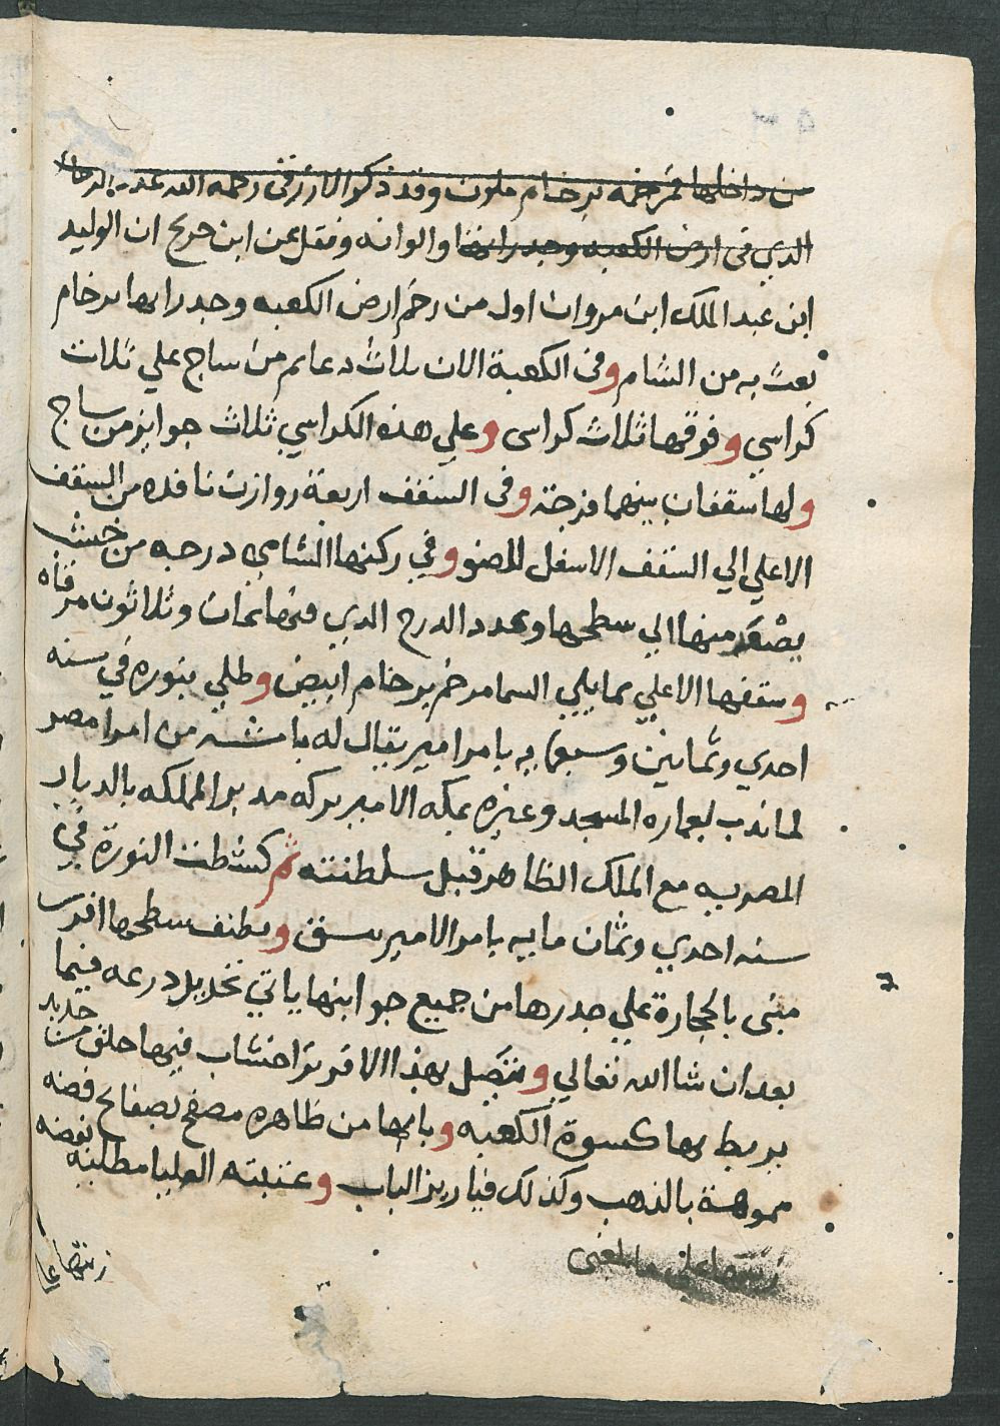 من داخلها مرخمه برخام ملون وقد ذكر الازرقى رحمه الله عدد الرخام
الذي فى ارض الكعبه وجدرانها والوانه ونقل عن ابن جريج ان الوليد
ابن عبد الملك ابن مروان اول من رخم ارض الكعبه وجدرانها برخام
بعث به من الشام وفى الكعبة الان ثلاث دعايم من ساج علي ثلاث
كراسي وفوقها ثلاث كراسى وعلي هذه الكراسي ثلاث جوايز من ساج
ولها سقفان بينهما فرجة وفى السقف اربعة روازن نافده من السقف
الاعلي الي السقف الاسفل للضو وفي ركنها الشامي درجه من خشب
يصعد منها الي سطحها وعدد الدرج الدي فيها ثمان وثلاثون مرقاه
وسقفها الاعلي مما يلي السما مرخم برخام ابيض وطلي بنوره في سنه
احدي وثمانين وسبعمايه بامر امير يقال له باشه من امرا مصر
لما ندب لعماره المسجد وغيره بمكه الامير بركه مدبر المملكه بالديار
المصريه مع الملك الظاهر قبل سلطنته ثم كشطت النورة في
سنه احدي وثمان مايه بامر الامير بيسق ويطنف بسطحها افريز
مبنى بالحجارة علي جدرها من جميع جوابنها ياتي تحديد درعه فيما
بعد ان شا الله تعالي ويتصل بهذا الافريز اخشاب فيها حلق من حديد
يربط بها كسوة الكعبه وبابها من ظاهره مصفح بصفايح فضه
مموهة بالذهب وكذلك فيارير الباب وعتبته العليا مطليه بفضه
زنتها علي ما بلغنى
زنتها عل